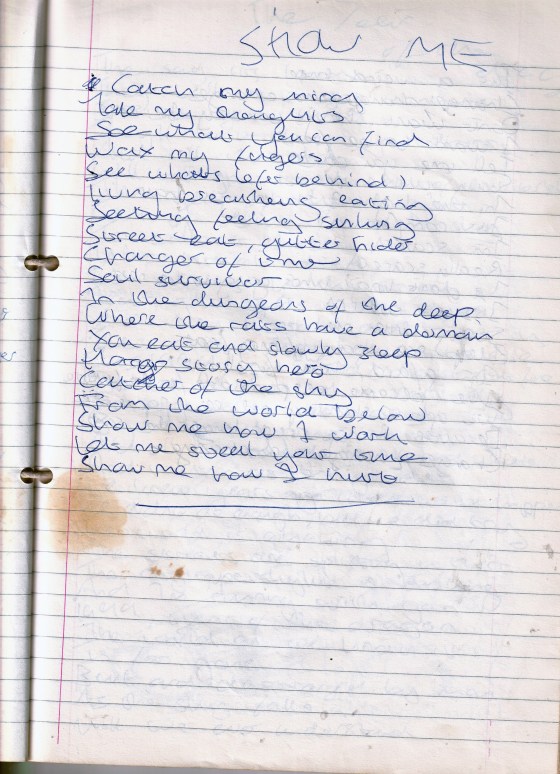 SHOW ME
Catch my mind
Take my thoughts
See what you can find
Wax my fingers
See whats left behind)
living breathing eating
Seething feeling sinking
Street eat, gutter hider
Changer of time
Soul survivor
In the dungeons of the deep
Where the rats have a domain
You eat and slowly sleep
story hero
Catcher of the sky
From the world below
Show me how I work
Let me steal your time
Show me how I hurt